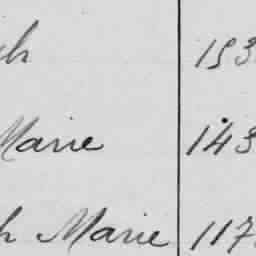 ph 153
Marie 143
h Marie 117